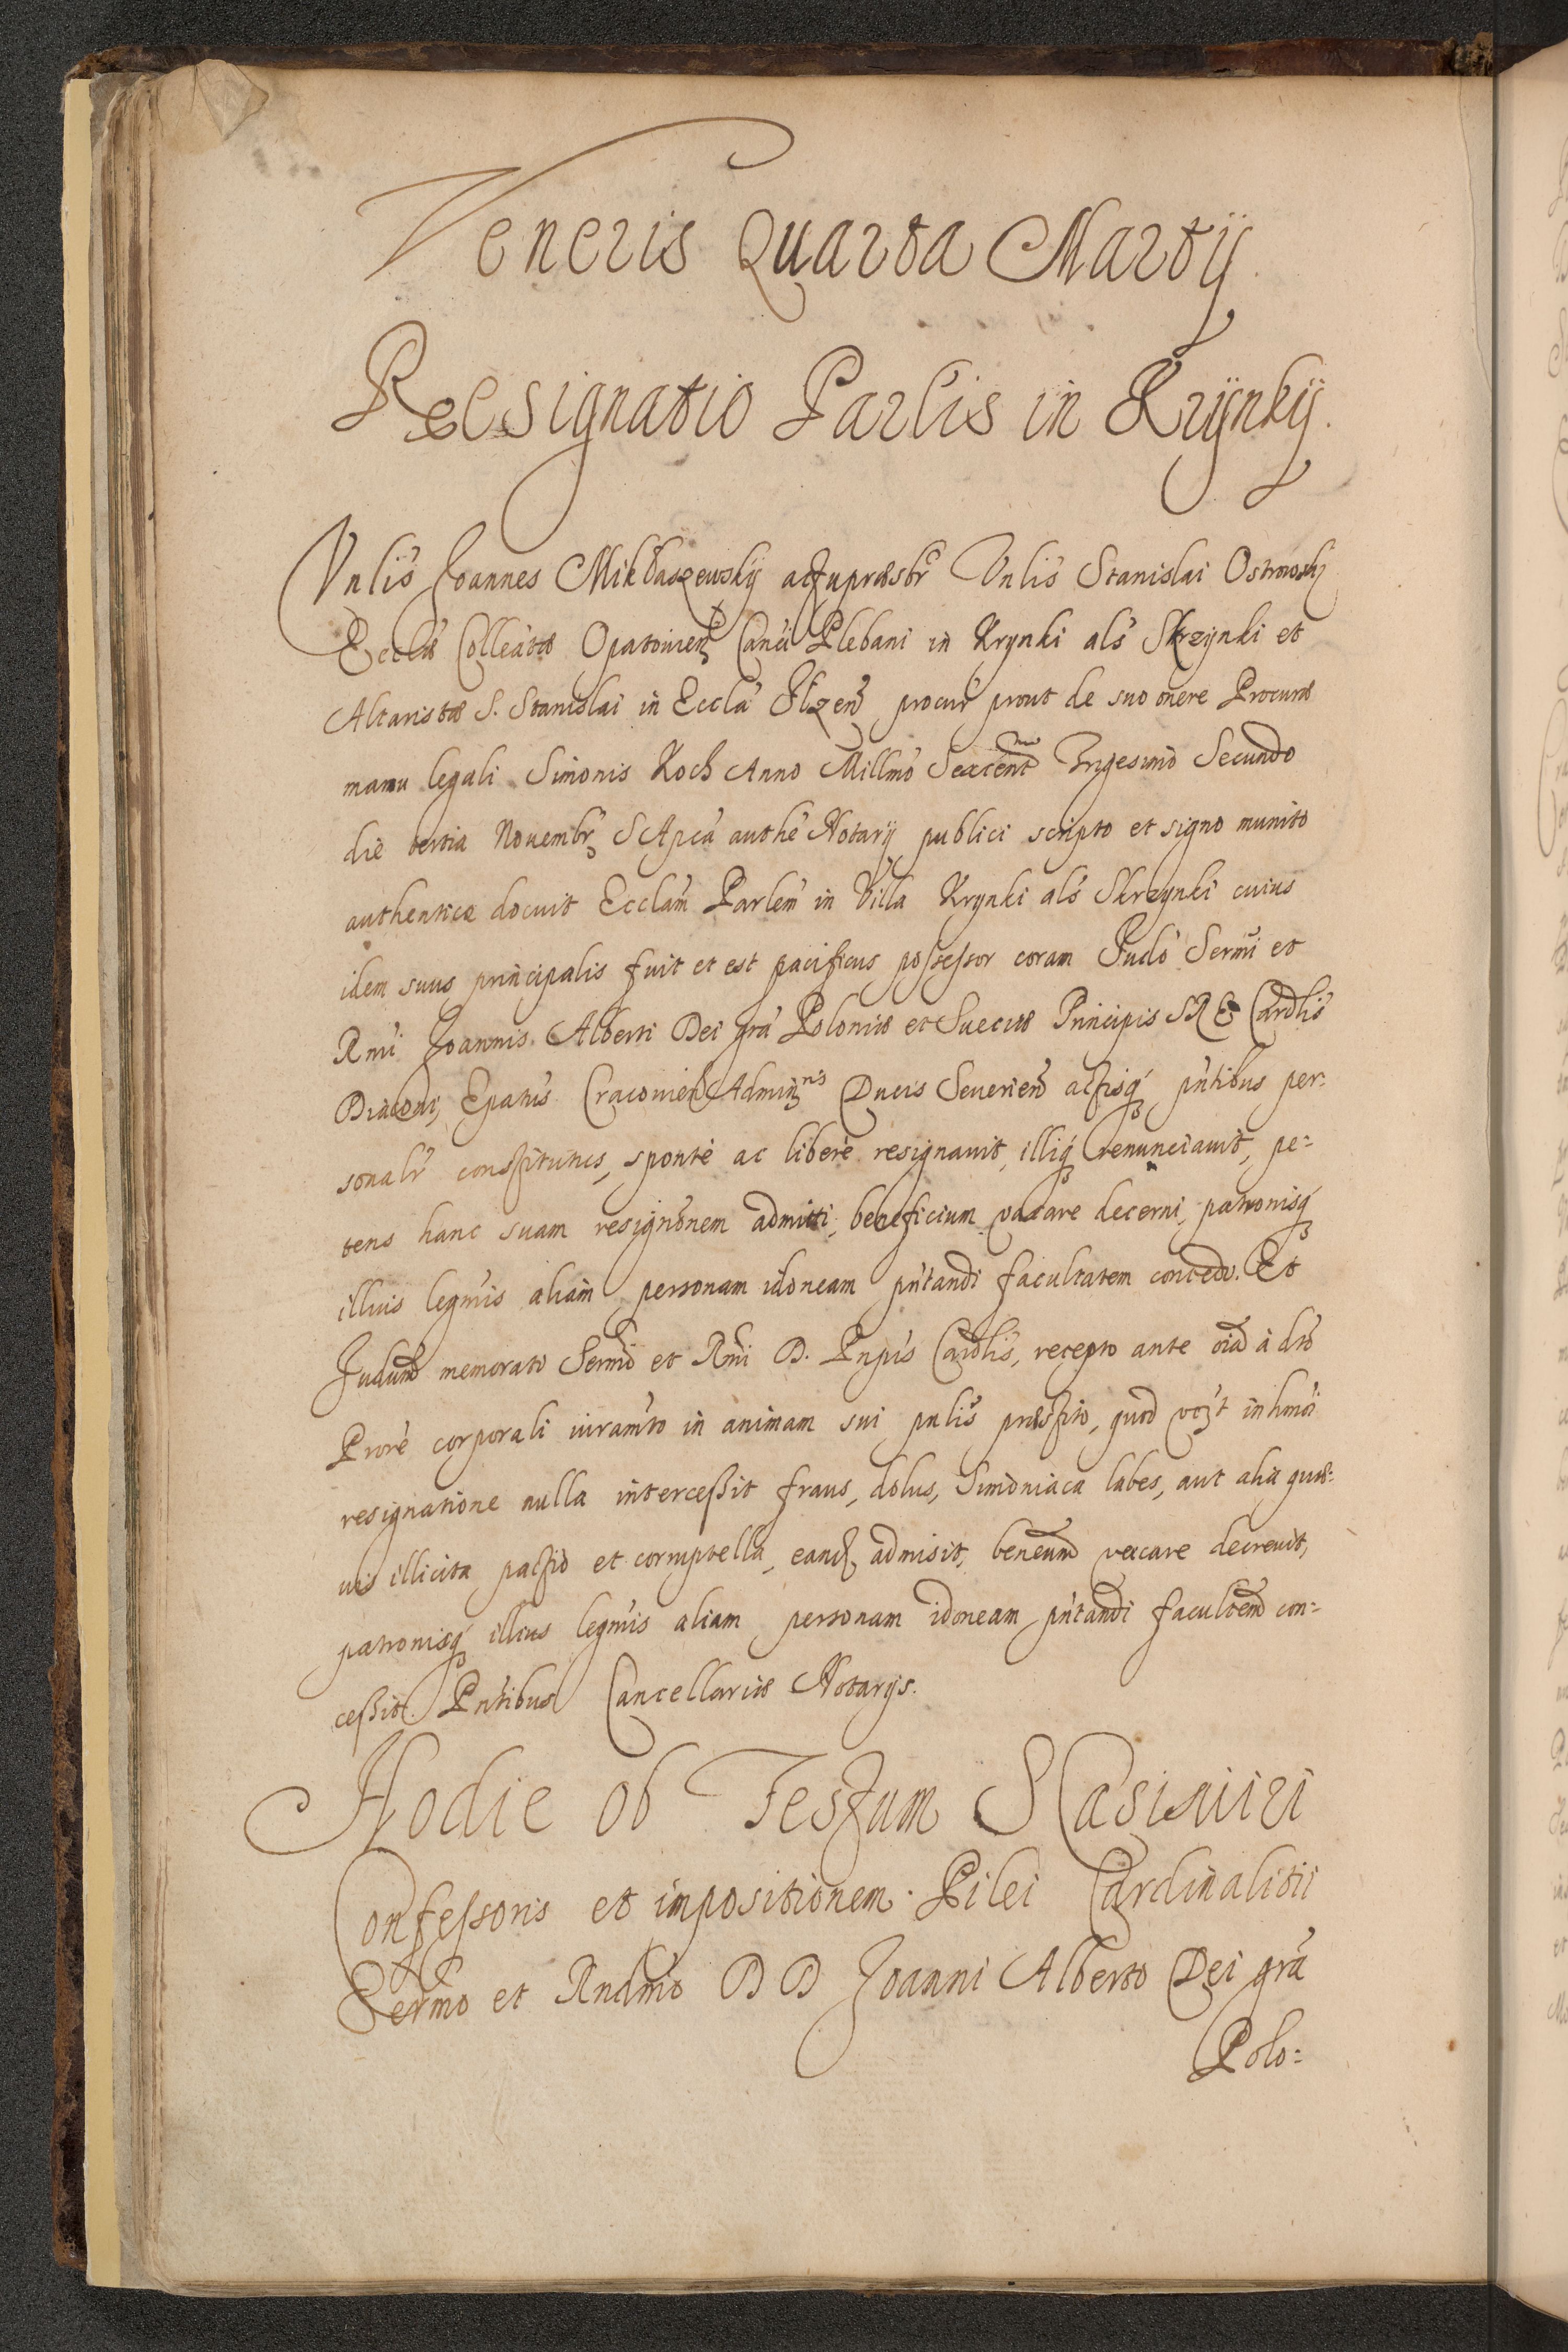 Veneris Quarta Martij.
Resignatio Parlis in Krÿnkÿ.
Vnlis Joannes Miklaszewskij Vnlis Stanislai
Ecclæ Colleatæ Opatouien Canci Plebani in Krynki als Skrzÿnki et
Altaristæ S. Stanislai in Eccla Ilzen procur prout de suo onere Procuræ
manu legali Simonis Koch Anno Millmo Sexcent Trigesimo Secundo
die tertia Nouembr S Apca authe Notarij publici scripto et signo munito
authentice docuit Ecclam Parlem in Villa Krynki als Skrzynki cuius
idem suus principalis fuit et est pacificus possessor coram Judo Sermi et
Rmi Joannis Alberti Dei gra Poloniæ et Sueciæ Principis SRE Cardlis
Diaconi, Epatus Cracouien Adminris Ducis Seuerien actisq pntibus per-
sonalr constitutus, sponte ac libere resignauit, illiq renunciauit, pe=
tens hanc suam resignonem admitti, beneficium vacare decerni, patronisq
illius legmis aliam personam idoneam pntandi facultatem concedi. Et
Judum memorato Sermo et Rmi D. Pnpis Cardlis, recepto ante oia à dto
Prore corporali iuramto in animam sui pnlis præstito, quod in hmoi
resignatione nulla intercessit fraus, dolus, Simoniaca labes, aut alia quæ=
uis illicita pactio et corruptella, eand admisit, beneum vacare decreuit,
patronisq illius legmis aliam personam idoneam pntandi facultem con=
cessit. Pntibus Cancellariæ Notarijs.
Hodie ob Festum S Casimiri
Confessoris et impositionem Pilei Cardinalitii
Sermo et Rndmo D D Joanni Alberto Dei gra
Polo=